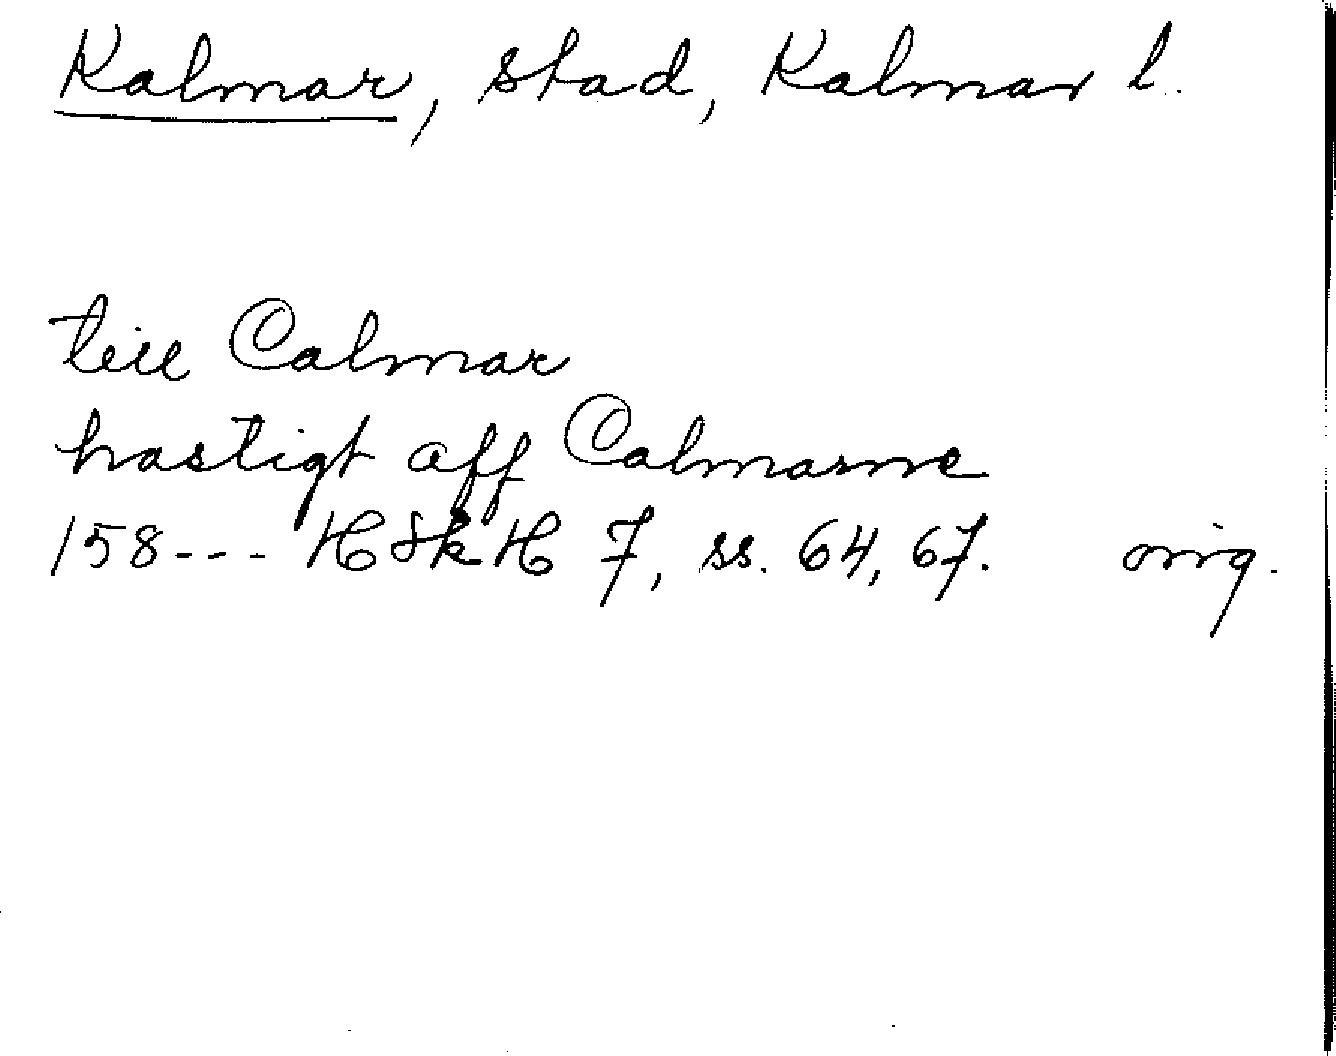 Kalmar, stad, Kalmar l.
till Calmar
hastigt aff Calmarne
158--- HSkH 7, ss. 64, 67. orig.